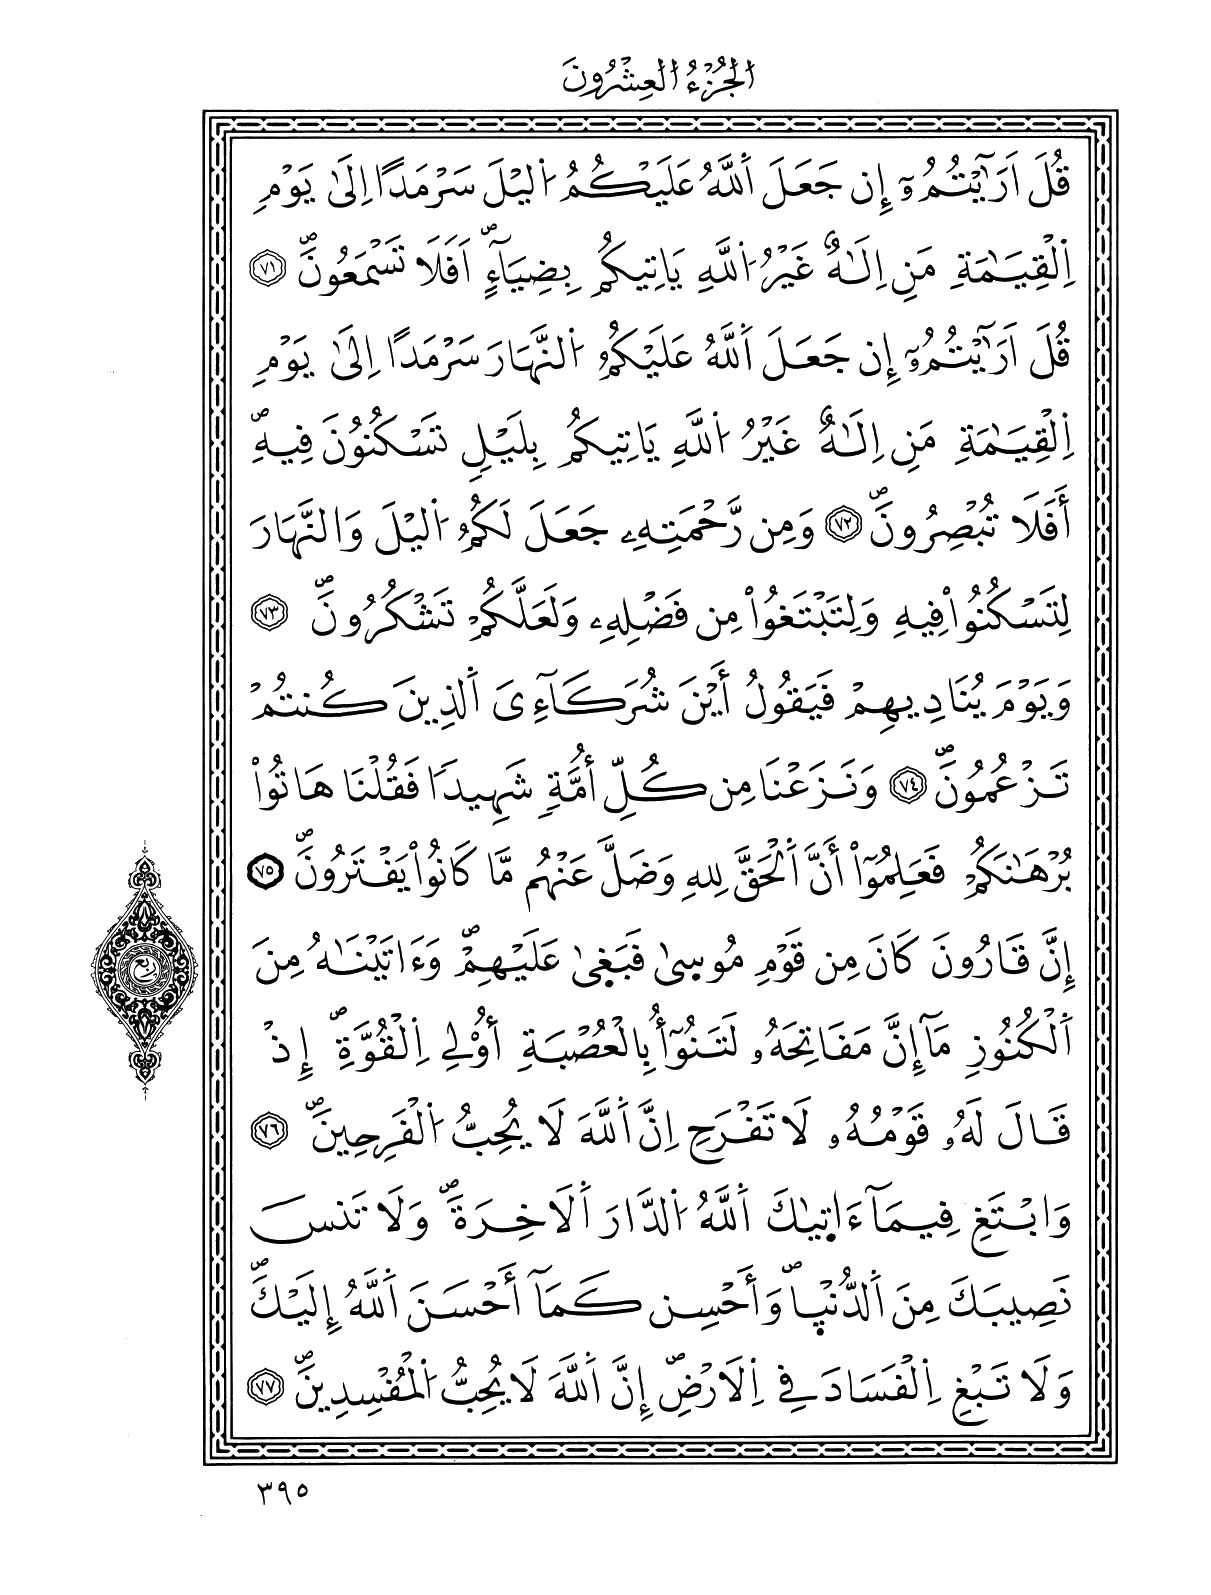 الجُزْءُ العِشْرُونَ
قُلَ اَرَٰٓيْتُمُۥٓ إِن جَعَلَ اَ۬للَّهُ عَلَيْكُمُ اُ۬ليْلَ سَرْمَداً اِلَىٰ يَوْمِ
اِ۬لْقِيَٰمَةِ مَنِ اِلَٰهٌ غَيْرُ اُ۬للَّهِ يَاتِيكُم بِضِيَآءٍۖ اَفَلَا تَسْمَعُونَۖ ٧١
قُلَ اَرَٰٓيْتُمُۥٓ إِن جَعَلَ اَ۬للَّهُ عَلَيْكُمُ اُ۬لنَّهَارَ سَرْمَداً اِلَىٰ يَوْمِ
اِ۬لْقِيَٰمَةِ مَنِ اِلَٰهٌ غَيْرُ اُ۬للَّهِ يَاتِيكُم بِلَيْلٖ تَسْكُنُونَ فِيهِۖ
أَفَلَا تُبْصِرُونَۖ ٧٢ وَمِن رَّحْمَتِهِۦ جَعَلَ لَكُمُ اُ۬ليْلَ وَالنَّهَارَ
لِتَسْكُنُواْ فِيهِ وَلِتَبْتَغُواْ مِن فَضْلِهِۦ وَلَعَلَّكُمْ تَشْكُرُونَۖ ٧٣
وَيَوْمَ يُنَادِيهِمْ فَيَقُولُ أَيْنَ شُرَكَآءِىَ اَ۬لذِينَ كُنتُمْ
تَزْعُمُونَۖ ٧٤ وَنَزَعْنَا مِن كُلِّ أُمَّةٖ شَهِيداً فَقُلْنَا هَاتُواْ
بُرْهَٰنَكُمْ فَعَلِمُوٓاْ أَنَّ اَ۬لْحَقَّ لِلهِ وَضَلَّ عَنْهُم مَّا كَانُواْ يَفْتَرُونَۖ ٧٥
إِنَّ قَارُونَ كَانَ مِن قَوْمِ مُوسىٰ فَبَغىٰ عَلَيْهِمْۖ وَءَاتَيْنَٰهُ مِنَ
اَ۬لْكُنُوزِ مَآ إِنَّ مَفَاتِحَهُۥ لَتَنُوٓأُ بِالْعُصْبَةِ أُوْلِے اِ۬لْقُوَّةِۖ إِذْ
قَالَ لَهُۥ قَوْمُهُۥ لَا تَفْرَحِ اِنَّ اَ۬للَّهَ لَا يُحِبُّ اُ۬لْفَرِحِينَۖ ٧٦
وَابْتَغِ فِيمَآ ءَاتٜيٰكَ اَ۬للَّهُ اُ۬لدَّارَ اَ۬لَاخِرَةَۖ وَلَا تَنسَ
نَصِيبَكَ مِنَ اَ۬لدُّنْيٜاۖ وَأَحْسِن كَمَآ أَحْسَنَ اَ۬للَّهُ إِلَيْكَۖ
وَلَا تَبْغِ اِ۬لْفَسَادَ فِے اِ۬لَارْضِۖ إِنَّ اَ۬للَّهَ لَا يُحِبُّ اُ۬لْمُفْسِدِينَۖ ٧٧
ربع
٣٩٥